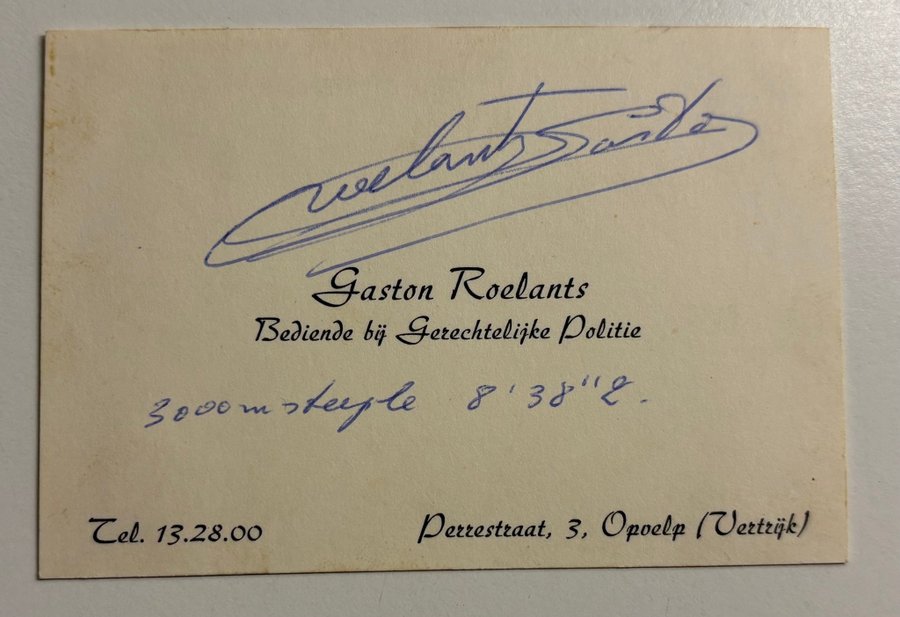 Roelants Gaston
Gaston Roelants
Bediende bij Gerechtelijke Politie
3000m steeple 8'38"2.
Tel. 13.28.00
Perrestraat, 3, Opvelp (Vertrijk)